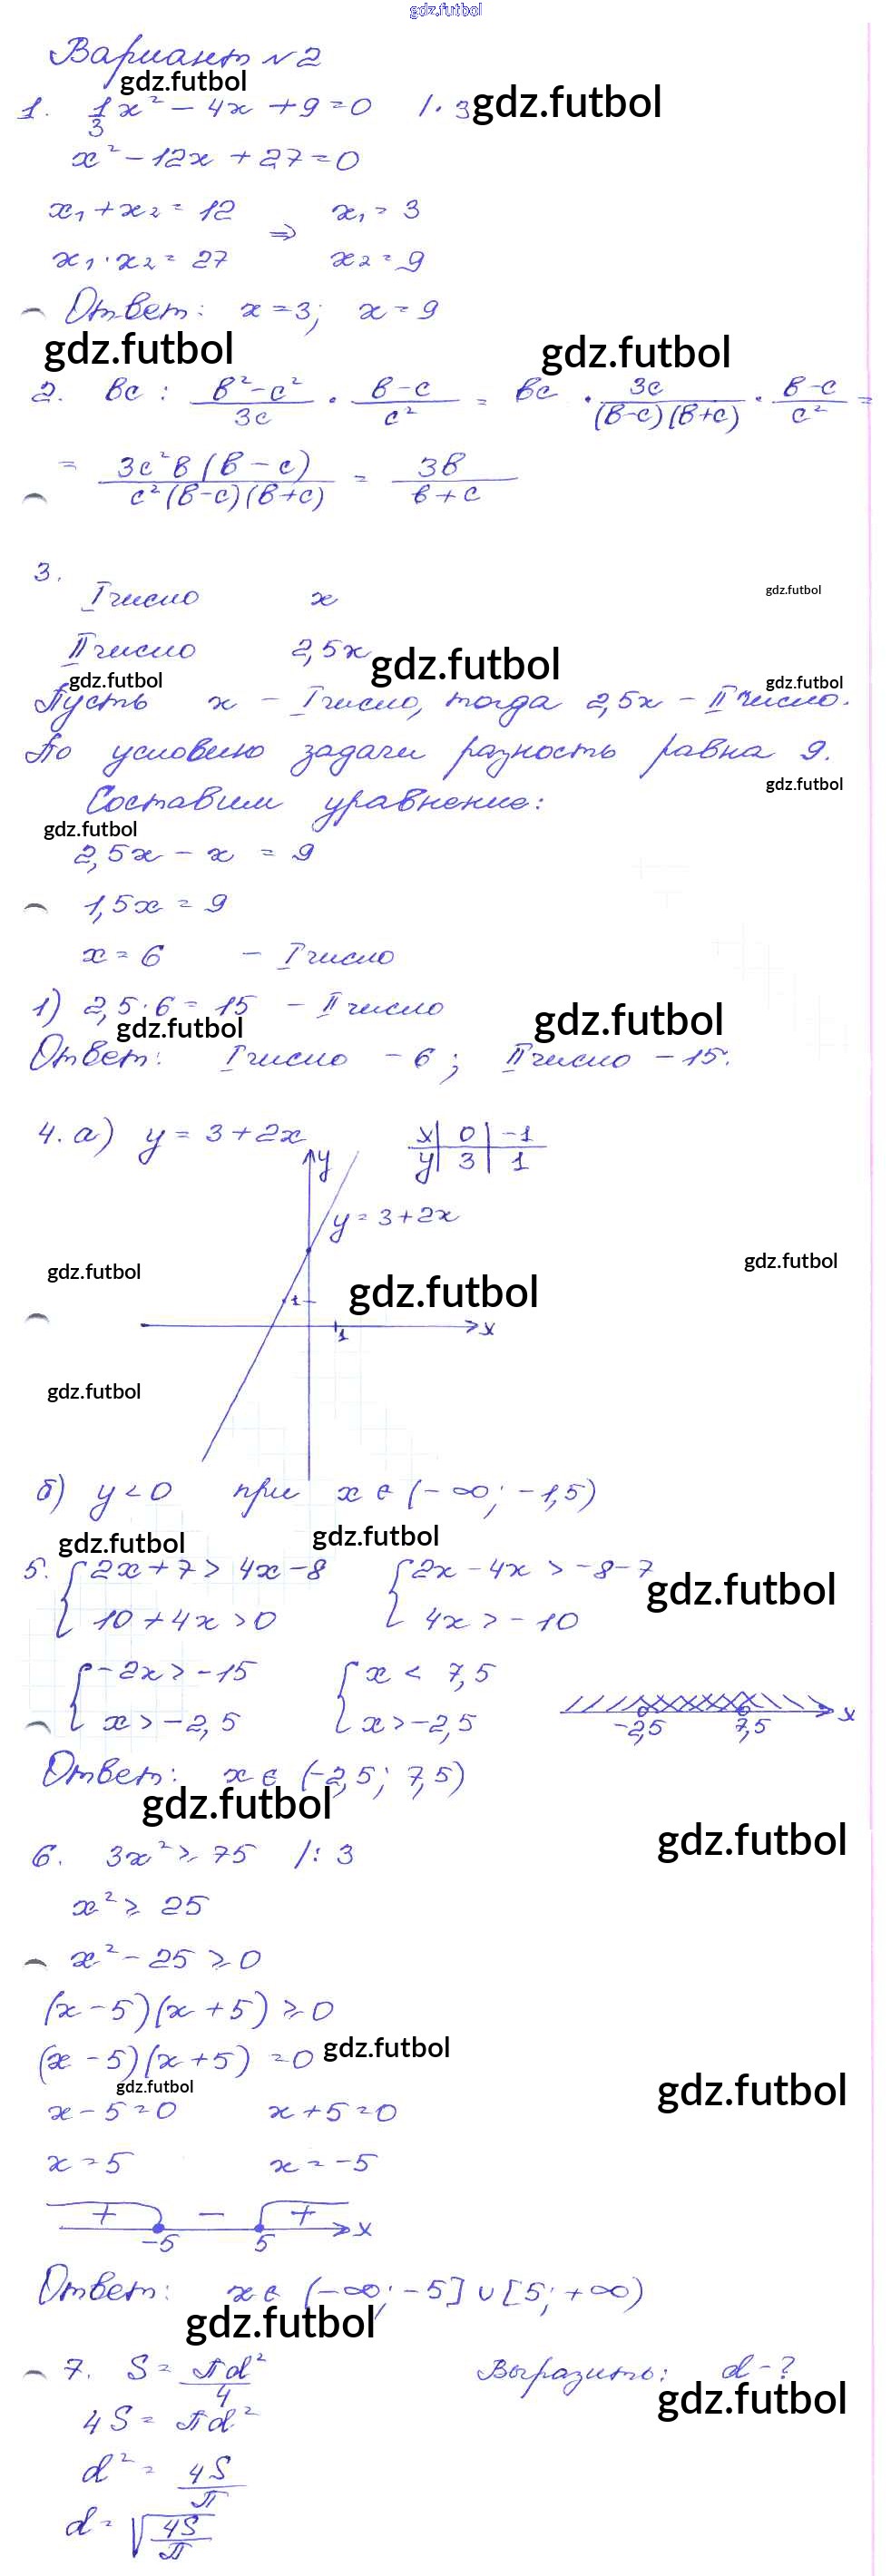 gdz.futbol
Вариант №2
gdz.futbol
1. 1/3 x² - 4x + 9 = 0 /· 3 gdz.futbol
x² - 12x + 27 = 0
x₁ + x₂ = 12 ⇒ x₁ = 3
x₁ · x₂ = 27 x₂ = 9
Ответ: x = 3; x = 9
gdz.futbol gdz.futbol
2. вс : (в² - с²)/3с · (в - с)/с² = вс · 3с/((в - с)(в + с)) · (в - с)/с² =
= 3с²в(в - с)/(с²(в - с)(в + с)) = 3в/(в + с)
3.
I число x gdz.futbol
II число 2,5x gdz.futbol
gdz.futbol gdz.futbol
Пусть x - I число, тогда 2,5x - II число.
По условию задачи разность равна 9.
gdz.futbol
Составим уравнение:
gdz.futbol
2,5x - x = 9
1,5x = 9
x = 6 - I число
1) 2,5 · 6 = 15 - II число gdz.futbol
gdz.futbol
Ответ: I число - 6; II число - 15.
4. а) y = 3 + 2x x | 0 | -1
y | 3 | 1
y
y = 3 + 2x
gdz.futbol gdz.futbol gdz.futbol
1
1 x
gdz.futbol
б) y < 0 при x ∈ (-∞; -1,5)
gdz.futbol gdz.futbol
5. { 2x + 7 > 4x - 8 { 2x - 4x > -8 - 7 gdz.futbol
10 + 4x > 0 4x > -10
{ -2x > -15 { x < 7,5
x > -2,5 x > -2,5 -2,5 7,5 x
Ответ: x ∈ (-2,5; 7,5)
gdz.futbol gdz.futbol
6. 3x² ⩾ 75 /: 3
x² ⩾ 25
x² - 25 ⩾ 0
(x - 5)(x + 5) ⩾ 0
(x - 5)(x + 5) = 0 gdz.futbol
gdz.futbol gdz.futbol
x - 5 = 0 x + 5 = 0
x = 5 x = -5
+ - + x
-5 5
Ответ: x ∈ (-∞; -5] ∪ [5; +∞)
gdz.futbol
7. S = πd²/4 Выразить: d - ?
gdz.futbol
4S = πd²
d² = 4S/π
d = √(4S/π)